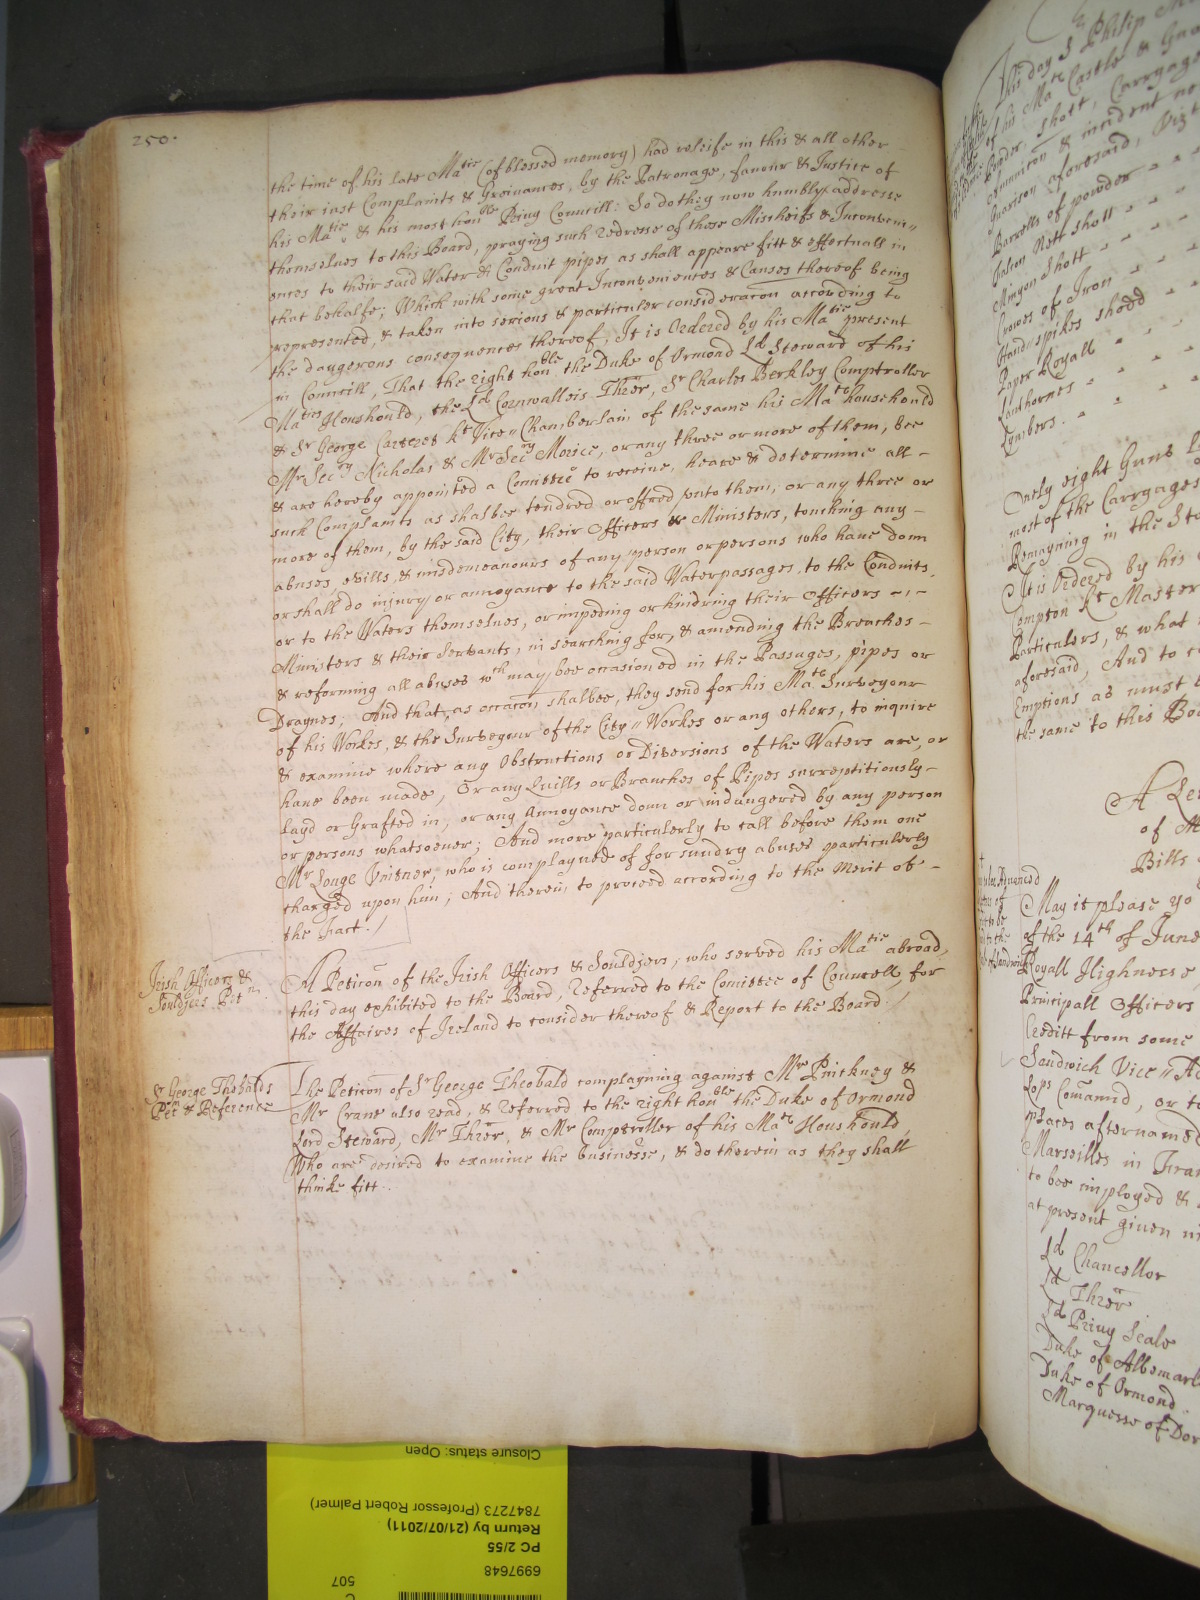 250.
the time of his late Ma^tie (of blessed memory) had releife in this & all other
their iust Complaints & Greivances, by the Patronage, favour & Justice of
his Ma^tie, & his most hon^ble Privy Councill: So do they now humbly addresse
themselves to this Board, praying such redresse of those Mischeifs & Inconveni=
ences to their said Water & Conduit pipes as shall appeare fitt & effectuall in
that behalfe; Which with some great Inconveniences & Causes thereof being
represented, & taken into serious & particuler consideracon according to
the dangerous consequences thereof, It is Ordered by his Ma^tie present
in Councill, That the right hon^ble the Duke of Ormond L^d Steward of his
Ma^ties Houshould, the L^d Cornwallis Thrër, S^r Charles Berkley Comptroller
& S^r George Carteret K^t Vice=Chamberlain of the same his Ma^ts household
M^r Sec^ry Nicholas & M^r Sec^ry Morice, or any three or more of them, bee
& are hereby appointed a Comittee to receive, heare & determine all -
such Complaints as shalbee tendred or offred unto them, or any three or
more of them, by the said City, their Officers or Ministers, touching any -
abuses, evills, & misdemeanours of any person or persons who have donn
or shall do iniury or annoyance to the said Waterpassages, to the Conduits,
or to the Waters themselves, or impeding or hindring their Officers -,-
Ministers & their Servants, in searching for, & amending the Breaches -
& reforming all abuses w^ch may bee occasioned in the Passages, pipes or
Draynes; And that, as occacon shalbee, they send for his Ma^ts Surveyour
of his Workes, & the Surveyour of the City=Workes or any others, to inquire
& examine where any Obstructions or Diversions of the Waters are, or
have been made, Or any Quills or Branches of Pipes surreptitiously -
layd or Grafted in, or any Annoyance donn or indangered by any person
or persons whatsoever; And more particulerly to call before them one
M^r Vintner, who is complayned of for sundry abuses particulerly
charged upon him; And therein to proceed according to the Merit of -
the Fact./
Irish Officers &
Souldjers Pet^n.
A Peticon of the Irish Officers & Souldjers, who served his Ma^tie abroad,
this day exhibited to the Board, Referred to the Comittee of Councell, for
the Affaires of Ireland to consider thereof & Report to the Board./
S^r George Thebalds
Pet^n & Reference
The Peticon of S^r George Theobald complayning against M^rs Pinckney &
M^r Crane also read, & referred to the right hon^ble the Duke of Ormond
Lord Steward, M^r Thrër, & M^r Comptroller of his Ma^ts Houshould,
Who are desired to examine the businesse, & do therein as they shall
thinke fitt.
This day S^r Philip
of his Ma^ts Castle & 
Powder, shott, Carryage
Ammunition & incident
Garrison aforesaid, Vizt
Barrells of powder - -
Falcon Rott shott - -
Minyon Shott - -
Crowes of Iron - -
Hand=spikes shodd - -
Paper Royall - -
Lanthornes - -
Tymbers. -
Only eight Guns
most of the Carryages
Remayning in the
It is Ordered by his
Compton K^t Master
Particulers, & what
aforesaid, And to
Emptions as must
the same to this
A
of
Bills
May it please yo
of the 14^th of June
Royall Highnesse,
Principall Officers
Creditt from some
Sandwich Vice=
Lo^ps Comannd, or
places afternamed
Marseilles in
to bee imployed &
at present given
L^d Chancellor
L^d Thrër
L^d Privy Seale
Duke of Albemarl
Duke of Ormond
Marquesse of Dor
Closure status: Open
7847273 (Professor Robert Palmer)
Return by (21/07/2011)
PC 2/55
6997648
507